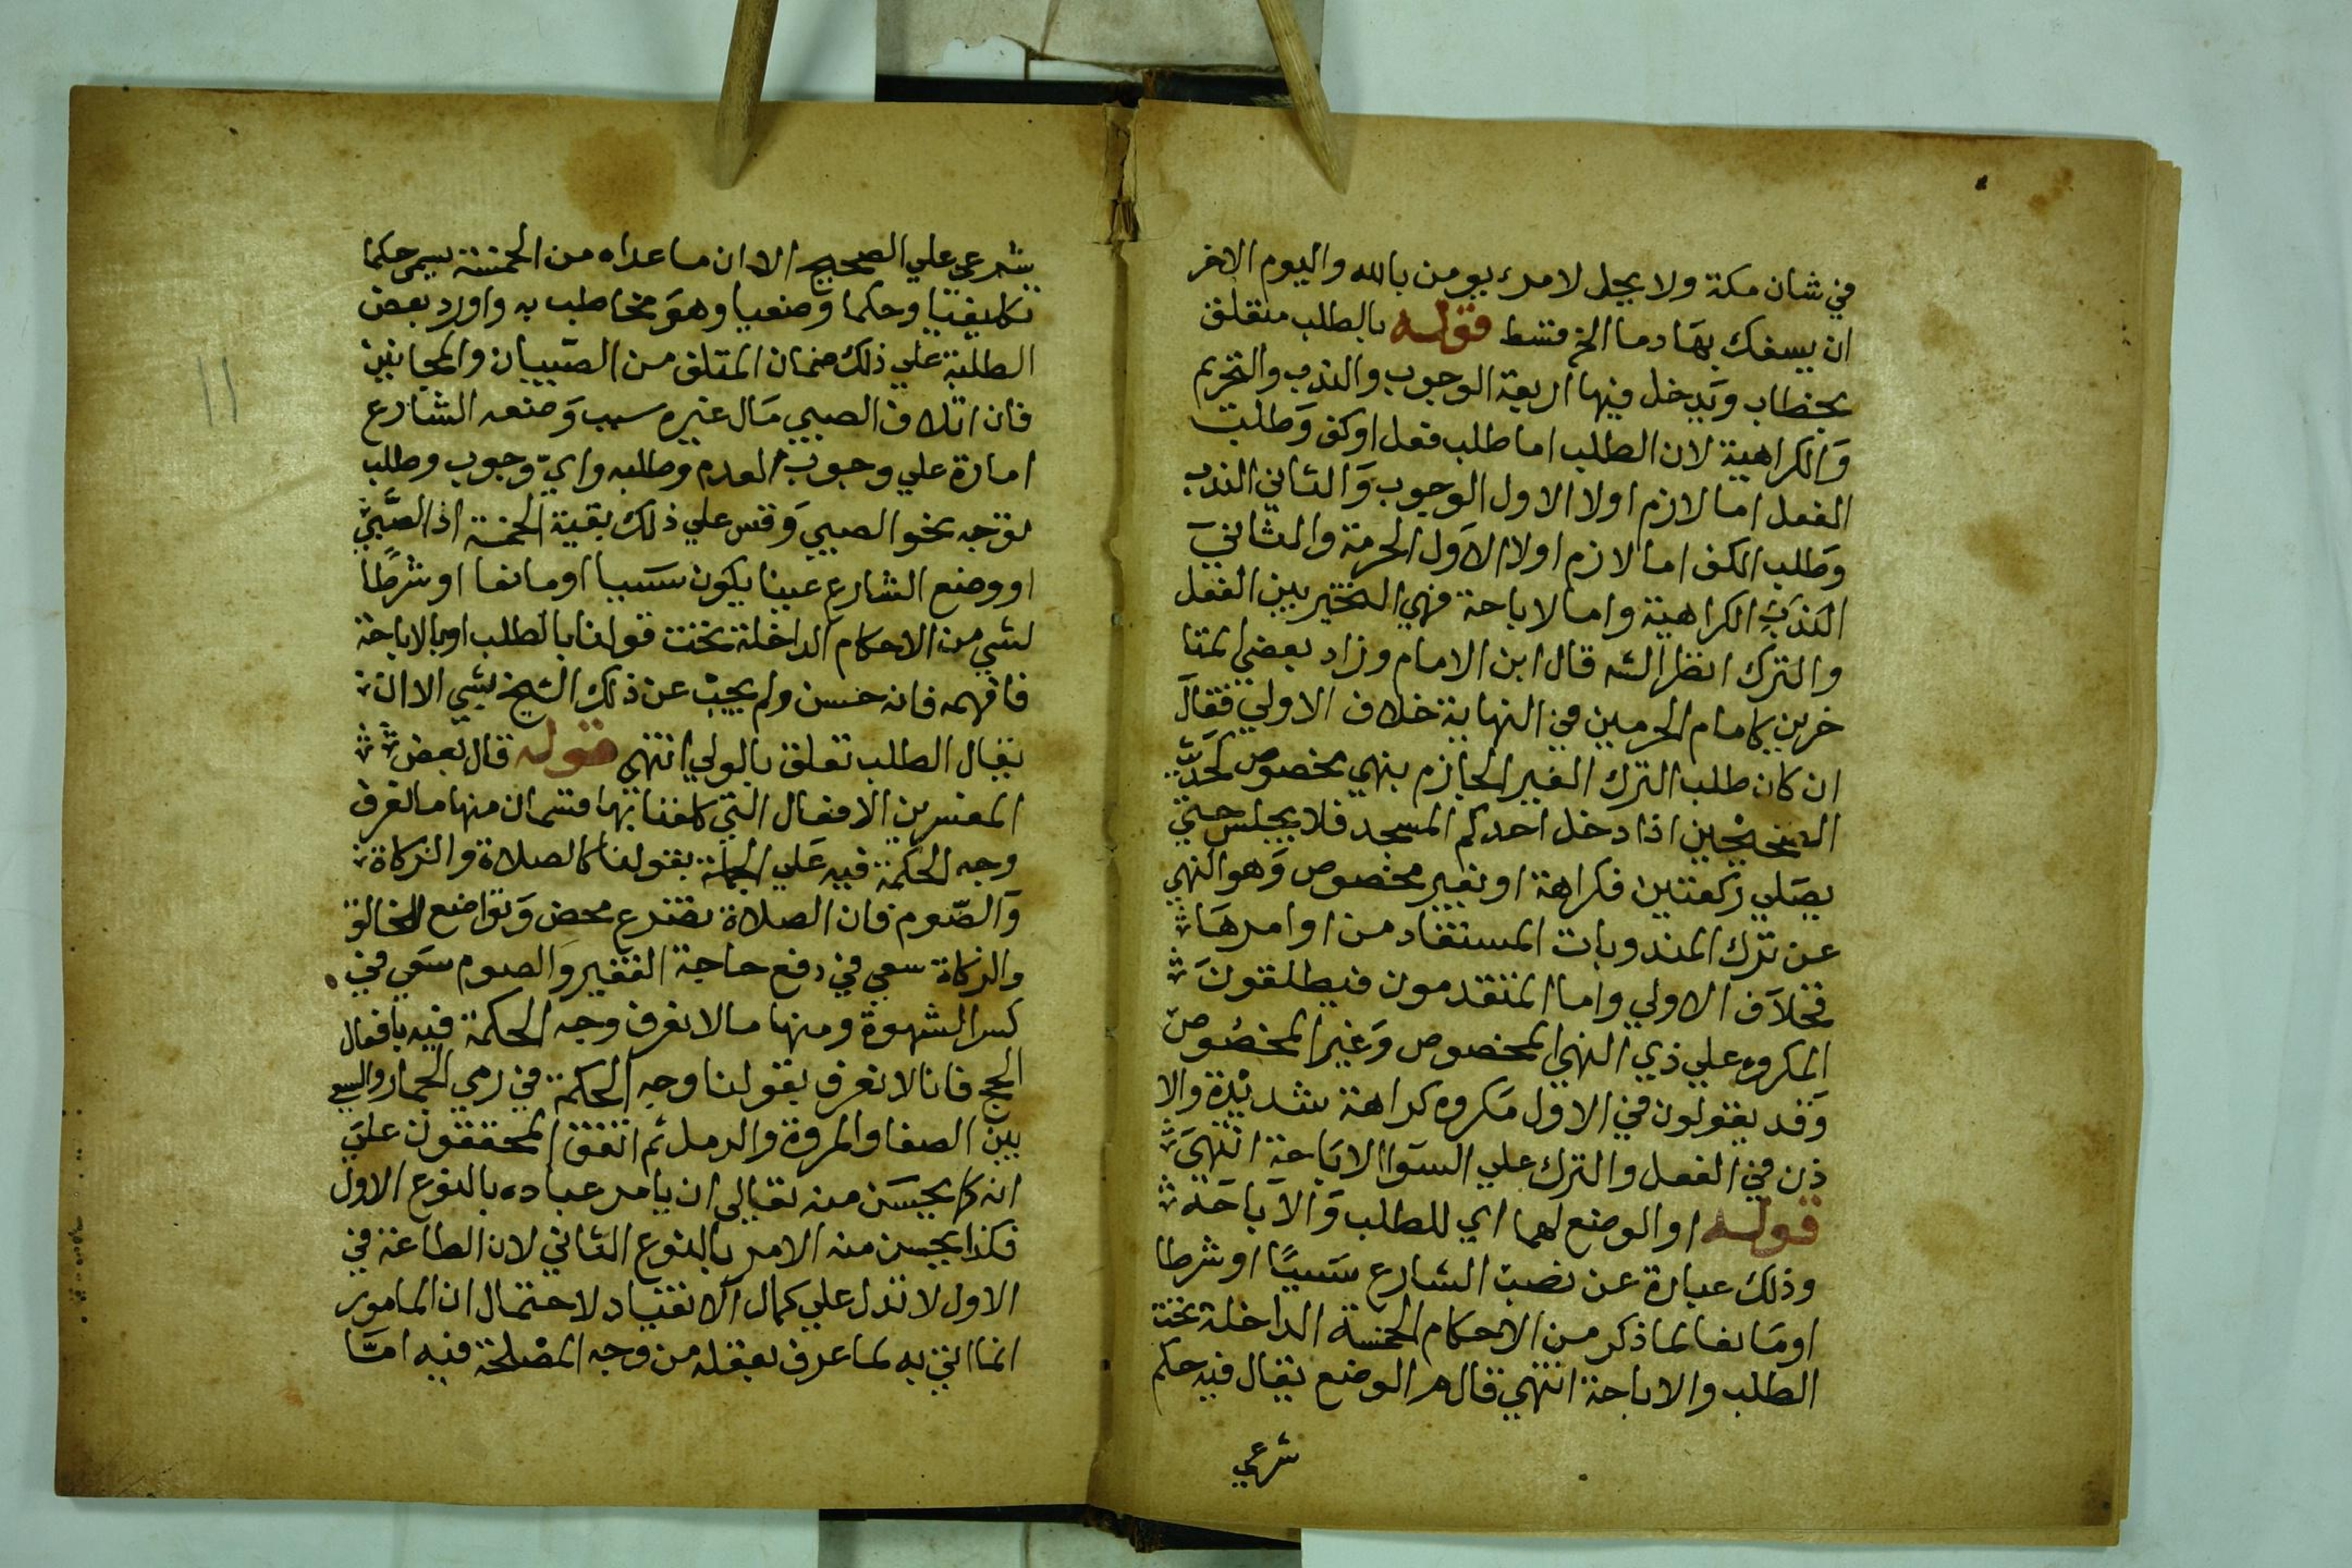 في شان مكة ولا يحل لامرء يومن بالله واليوم الاخر
ان يسفك بها دما الخ فتسط قوله بالطلب متعلق
بخطاب ويدخل فيها اربعة الوجوب والندب والتحريم
والكراهية لان الطلب اما طلب فعل او كف وطلب
الفعل اما لازم اولا الاول الوجوب والثاني الندب
وطلب الكف اما لازم اولا الاول الحرمة والثاني
الندب الكراهية واما الاباحة فهي التخيير بين الفعل
والترك انظر الشه قال ابن الامام وزاد بعض المتا
خرين كامام الحرمين في النهاية خلاف الاولي فقال
ان كان طلب الترك الغير الجازم بنهي مخصوص كحديث
الصحيحين اذا دخل احدكم المسجد فلا يجلس حتي
يصلي ركعتين فكراهة او بغير مخصوص وهو النهي
عن ترك المندوبات المستفاد من اوامرها
فخلاف الاولي واما المتقدمون فيطلقون
المكروه علي ذي النهي المخصوص وغير المخصوص
وقد يقولون في الاول مكروه كراهة شديدة والا
ذن في الفعل والترك علي السوا الاباحة انتهي
قوله او الوضع لهما اي للطلب والاباحة
وذلك عبارة عن نصب الشارع سببا او شرطا
او مانعا لما ذكر من الاحكام الخمسة الداخلة تحت
الطلب والاباحة انتهي قال م الوضع يقال فيه حكم
شرعي
شرعي علي الصحيح الا ان ما عداه من الخمسة يسمي حكما
تكليفيا وحكما وضعيا وهو مخاطب به واورد بعض
الطلبة علي ذلك ضمان المتلف من الصبيان والمجانين
فان اتلاف الصبي مال غيره سبب وضعه الشارع
امارة علي وجوب الغدم وطلبه واي وجوب وطلب
لوتجه نحو الصبي وقس علي ذلك بقية الخمسة اذ الصبي
او وضع الشارع عينا يكون سببا او مانعا او شرطا
لشي من الاحكام الداخلة تحت قولنا بالطلب او بالاباحة
فافهمه فانه حسن ولم يجب عن ذلك الشيخ بشي الا ان
يقال الطلب تعلق بالولي انتهي قوله قال بعض
المفسرين الافعال التي كلفنا بها قسمان منها ما نعرف
وجه الحكمة فيه علي الجملة بقولنا كالصلاة والزكاة
والصوم فان الصلاة تضرع محض وتواضع للخالق
والزكاة سعي في دفع حاجة الفقير والصوم سعي في
كسر الشهوة ومنها ما لا نعرف وجه الحكمة فيه بافعال
الحج فانا لا نعرف بقولنا وجه الحكمة في رمي الجمار والسعي
بين الصفا والمروة والرمل ثم اتفق المحققون علي
انه كما يحسن منه تعالي ان يامر عباده بالنوع الاول
فكذا يحسن منه الامر بالنوع الثاني لان الطاعة في
الاول لا تدل علي كمال الانقياد لاحتمال ان المامور
انما اتي به لما عرف بعقله من وجه المصلحة فيه اما